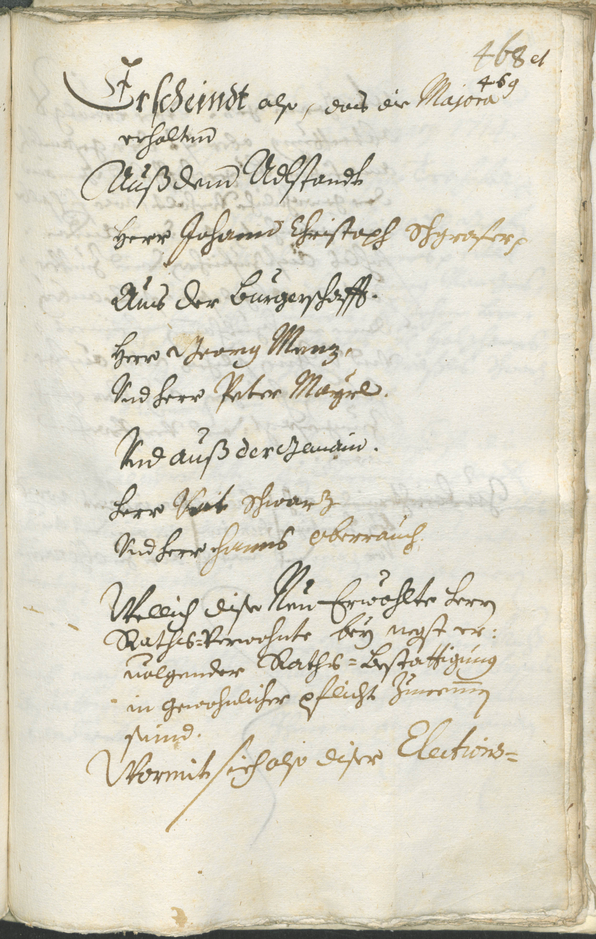 468 et
469
Erscheindt also, das die Majora
erhalten
Auß dem Adlstandt
Herr Johann Christoph Schgraffer
Aus der Burgerschafft.
Herr Georg Menz,
Und herr Peter Mayrl.
Und auß der Gemain.
Herr Veit Schwarz
Und herr Hanns Oberrauch.
Wellich dise Neu-Erwöhlte herrn
Raths-Verwohnte bey negst er:
volgender Raths-Bestättigung
in gewohnlicher pflicht Zunemen
seind.
Wormit sich also diser Elections-